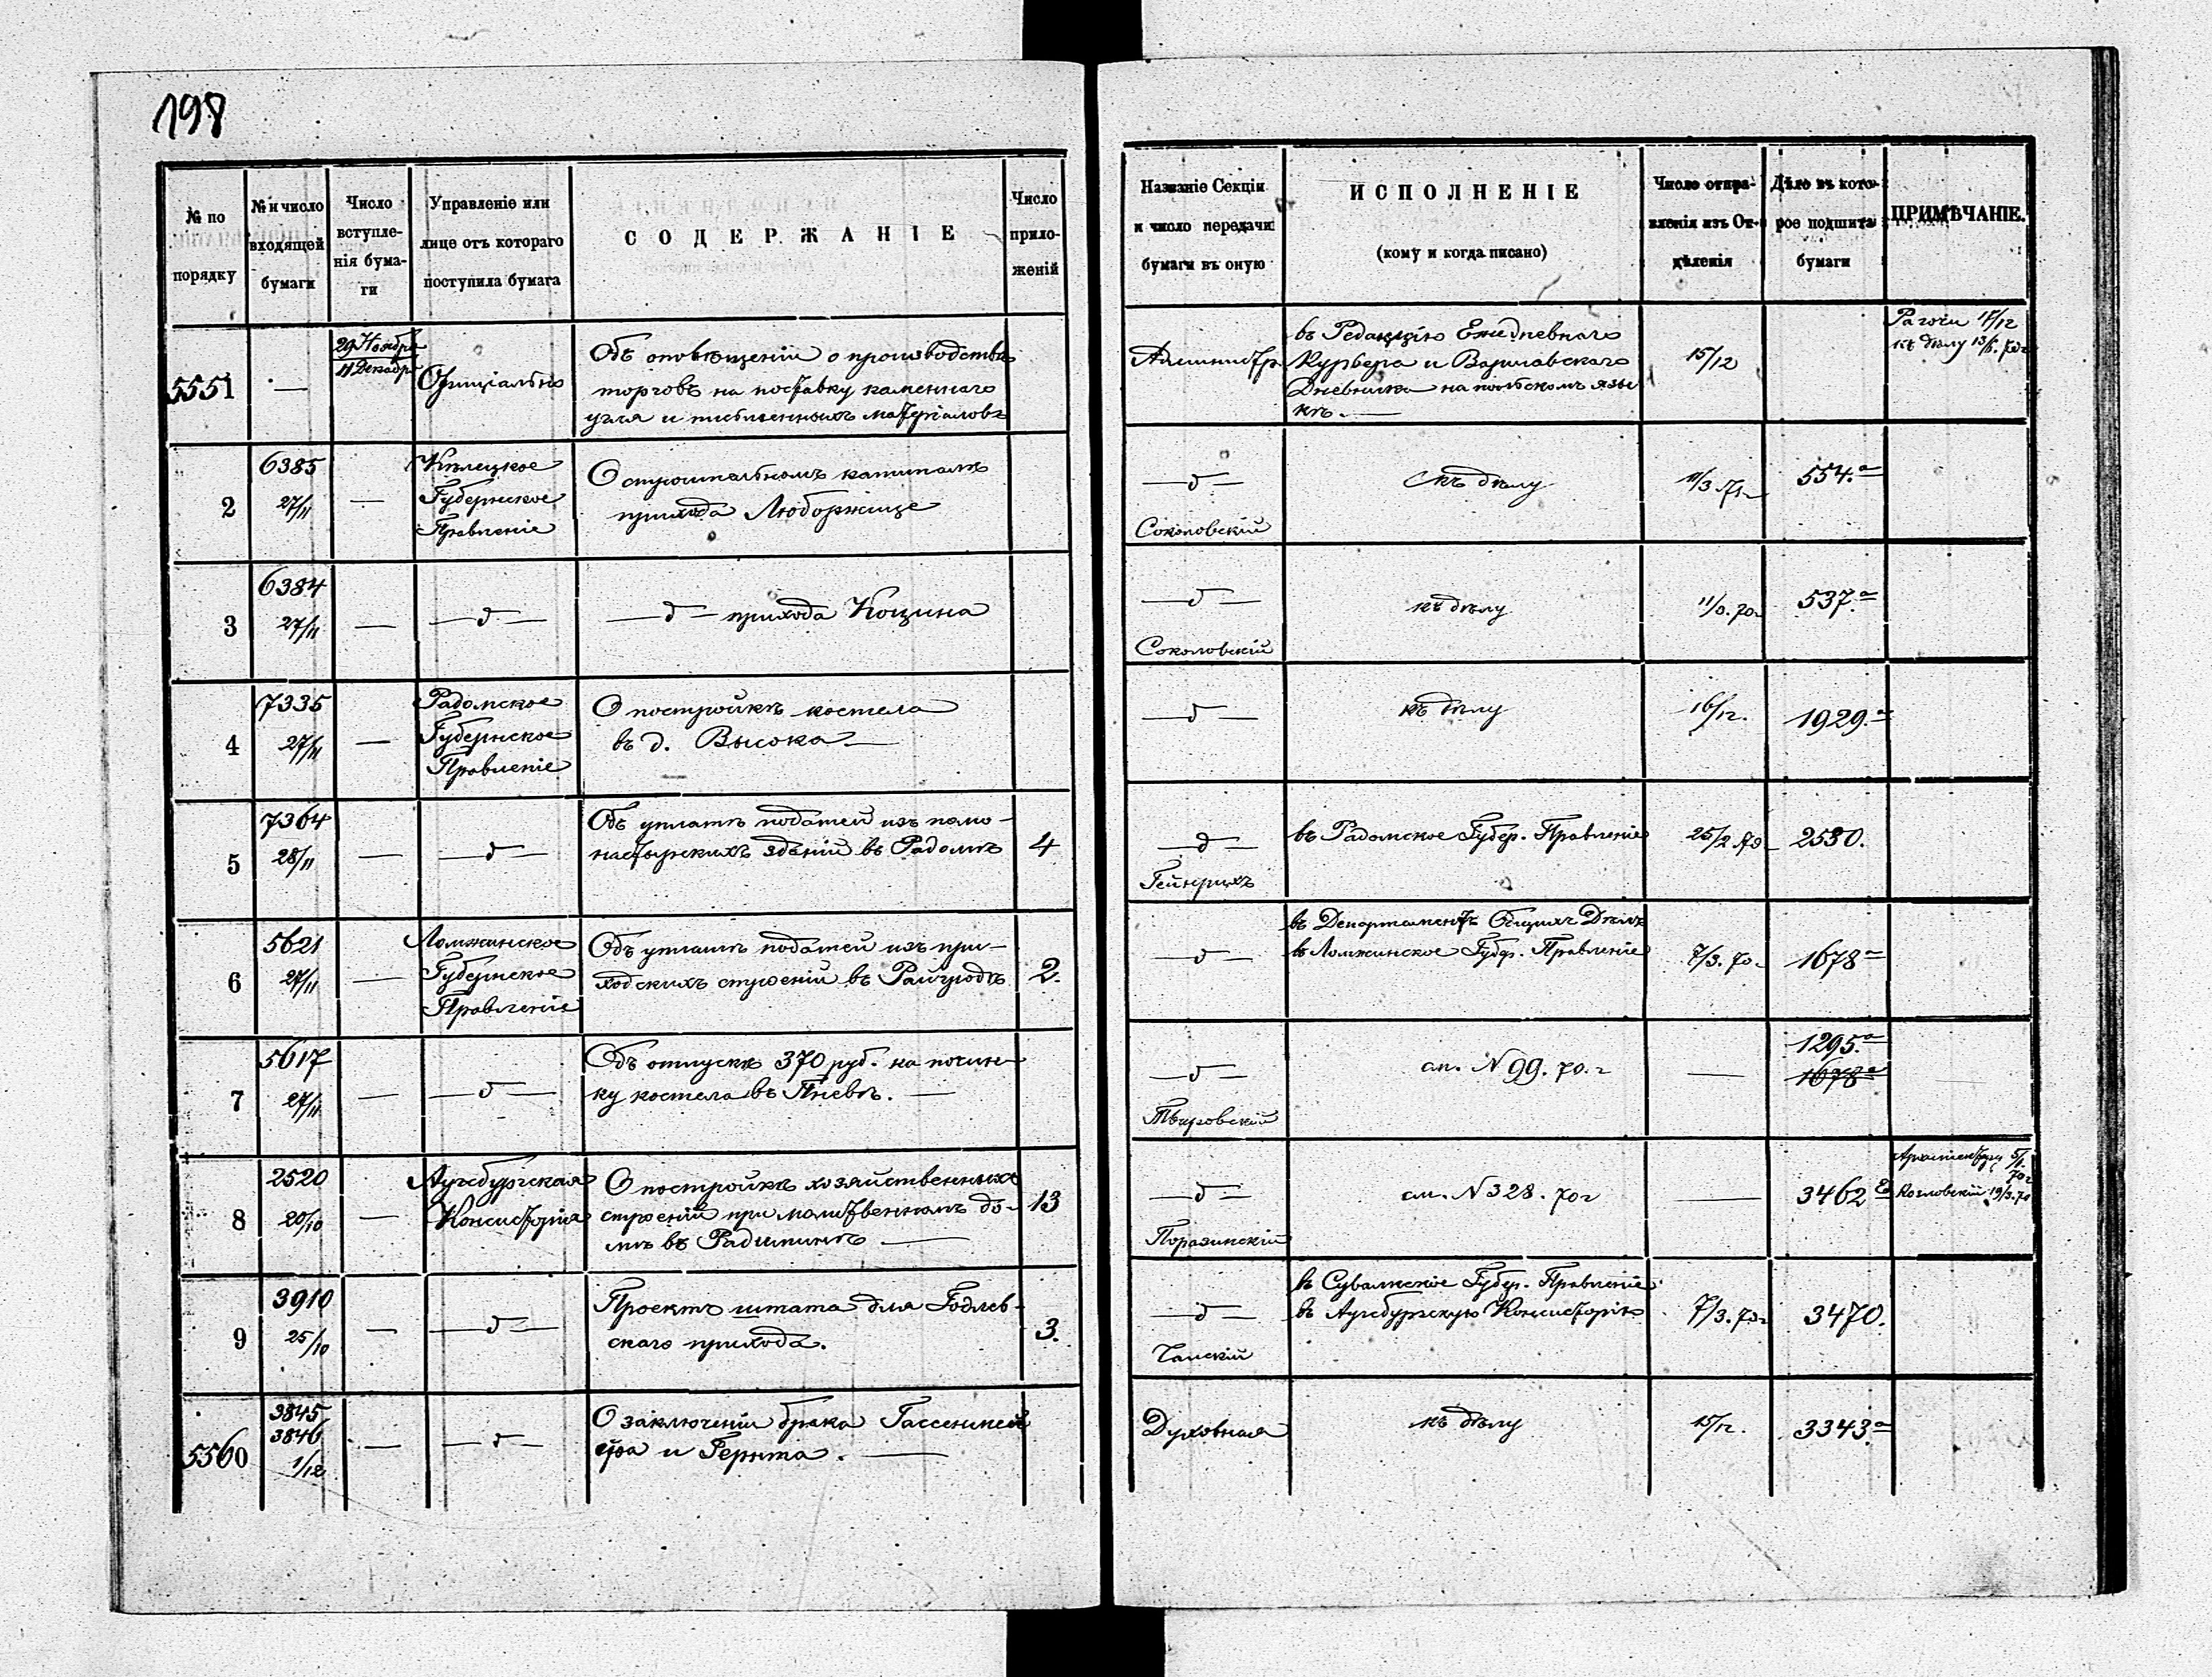 198
№ по порядку
№ и число входящей бумаги
Число вступленія бумаги
Управленіе или лице отъ котораго поступила бумага
СОДЕРЖАНІЕ
Число приложеній
Названіе Секціи и число передачи бумаги въ оную
ИСПОЛНЕНІЕ
(кому и когда писано)
Число отправленія изъ Отдѣленія
Дѣло въ которое подшита бумаги
ПРИМѢЧАНІЕ.
5551
—
29 Ноября
11 Декабр
Официально
Объ оповѣщеніи о производствѣ
торговъ на поставку каменнаго
угля и письменныхъ матеріаловъ
Администр.
въ Редакцію Ежедневнаго
Курьера и Варшавскаго
Дневника на польскомъ язы
кѣ. —
15/12
17/12
къ дѣлу
2
6385
27/11
—
Кѣлецкое
Губернское
Правленіе
О строительномъ капиталѣ
прихода Люборжице
— d —
Соколовскій
къ дѣлу
554.а
3
6384
27/11
—
— d —
— d — прихода Коцина
— d —
Соколовскій
къ дѣлу
537.а
4
7335
27/11
—
Радомское
Губернское
Правленіе
О постройкѣ костела
въ д. Высока —
— d —
къ дѣлу
16/12.
1929.а
5
7364
28/11
—
— d —
Объ уплатѣ податей изъ помо-
настырскихъ зданій въ Радомѣ
4
— d —
Гейнрихъ
въ Радомское Губер. Правленіе
25/2 70
2530.
6
5621
27/11
—
Ломжинское
Губернское
Правленіе
Объ уплатѣ податей изъ при-
ходскихъ строеній въ Райгродѣ
2.
— d —
въ Департаментъ Общихъ Дѣлъ
въ Ломжинское Губер. Правленіе
7/3. 70.
1678а
7
5617
27/11
—
— d —
Объ отпускѣ 370 руб. на почин-
ку костела въ Пневѣ. —
— d —
см. N 99. 70. г
—
1295.а
1678а
8
2520
20/10
—
Аугсбургская
Консисторія
О постройкѣ хозяйственныхъ
строеній при молитвенномъ до-
мѣ въ Радзиминѣ —
13
— d —
Поразинскій
см. N 328. 70 г
—
3462
Козловскій 19/3. 70
9
3910
25/10
—
— d —
Проектъ штата для Годлев-
скаго прихода.
3.
— d —
Чапскій
въ Сувалкское Губер. Правленіе
въ Аугсбургскую Консисторію
7/3. 70 г
3470.
5560
3845
3846
1/12
—
— d —
О заключеніи брака
и Гернта. —
Духовная
къ дѣлу
15/12.
3343.а